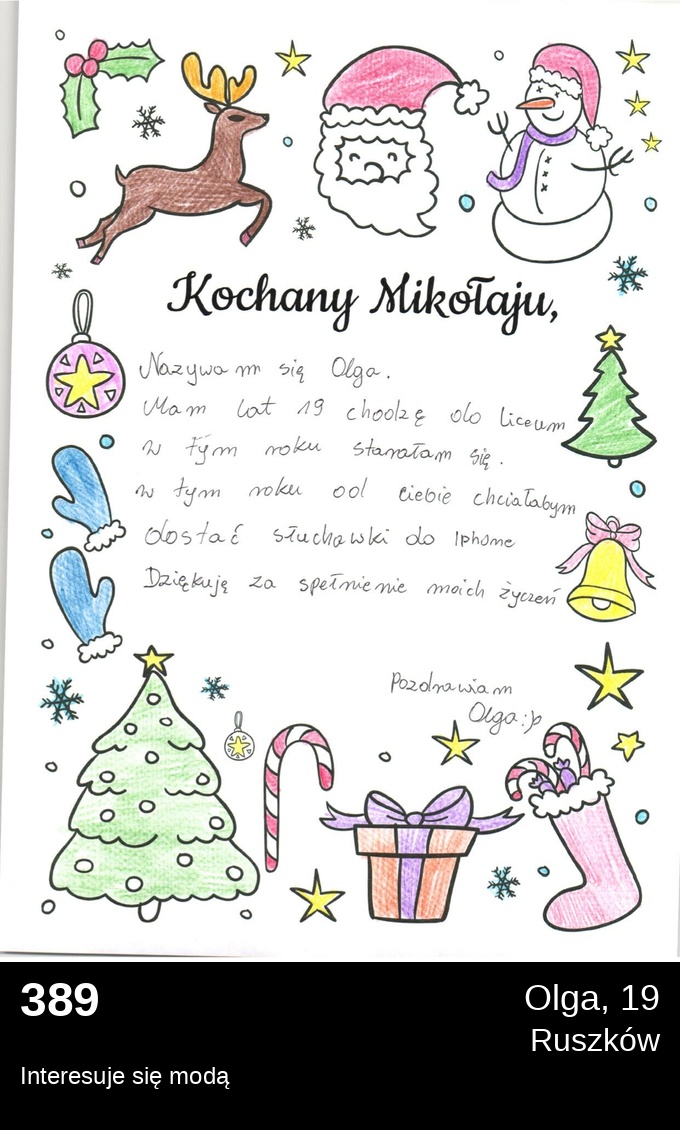 Kochany Mikołaju,
Nazywam się Olga.
Mam lat 19 chodzę do Liceum
w tym roku starałam się.
w tym roku od ciebie chciałabym
dostać słuchawki do Iphone
Dziękuję za spełnienie moich życzeń
Pozdrawiam
Olga :)
389
Olga, 19
Ruszków
Interesuje się modą